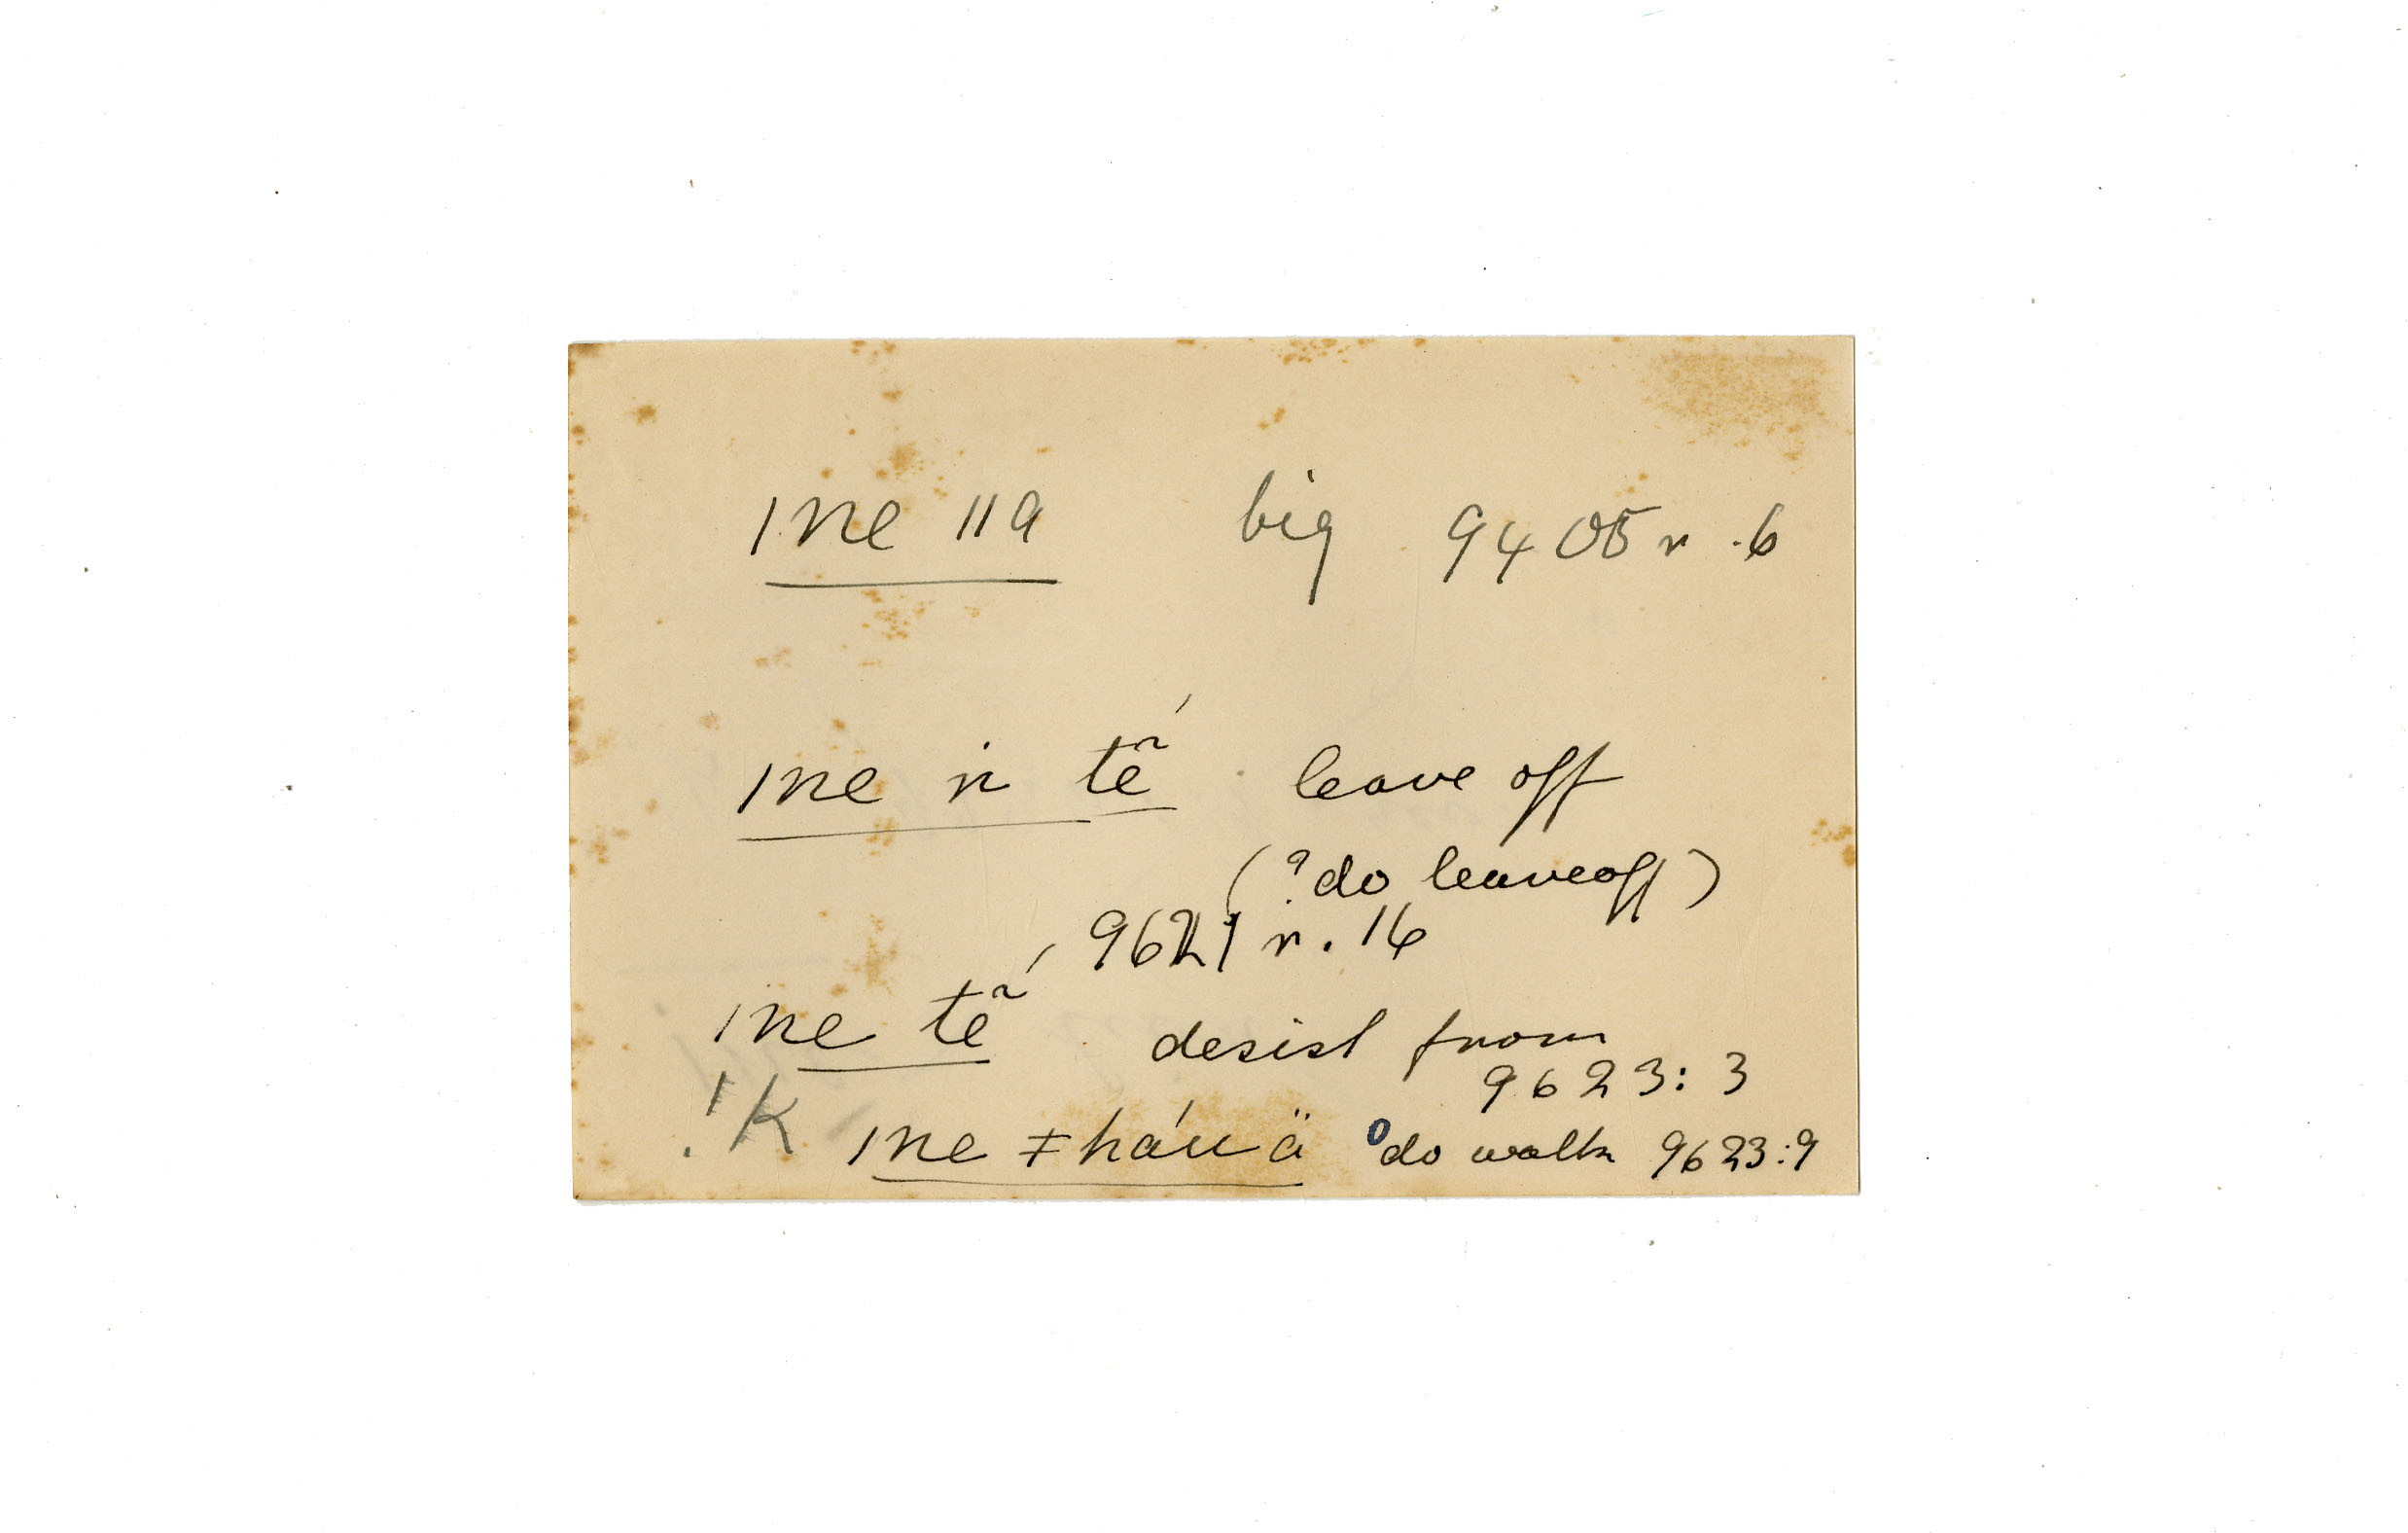 /ne //a big 9405 v. 6
/ne ṅ tẽ́ leave off
(? do leave off)
9621 v. 16
/ne tẽ́ desist from
9623:3
!K /ne ǂháuä do walk 9623:9